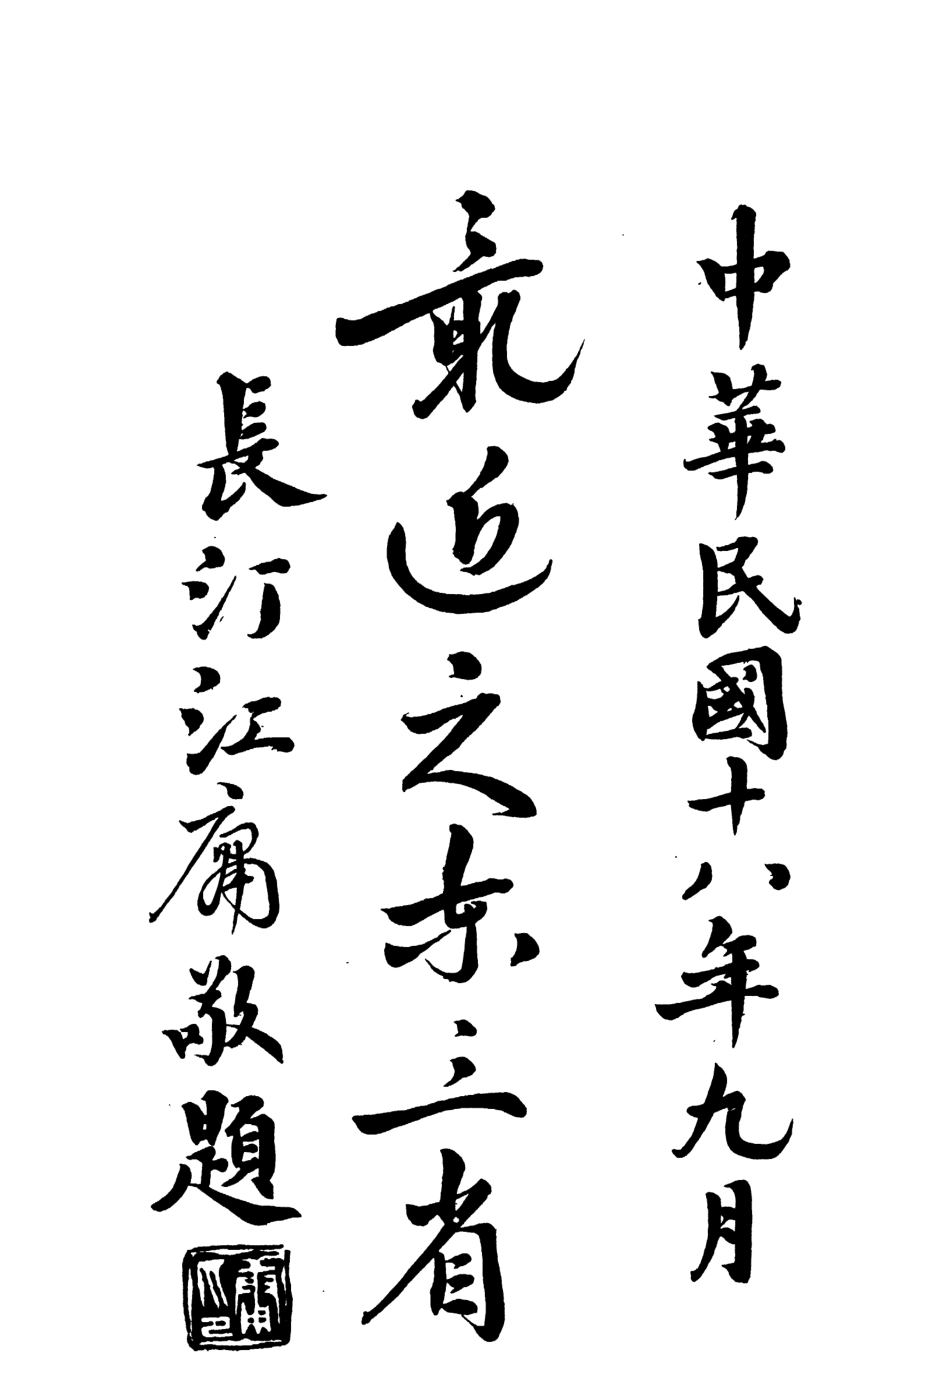 中華民國十八年九月
最近之东三省
長汀江庸敬題